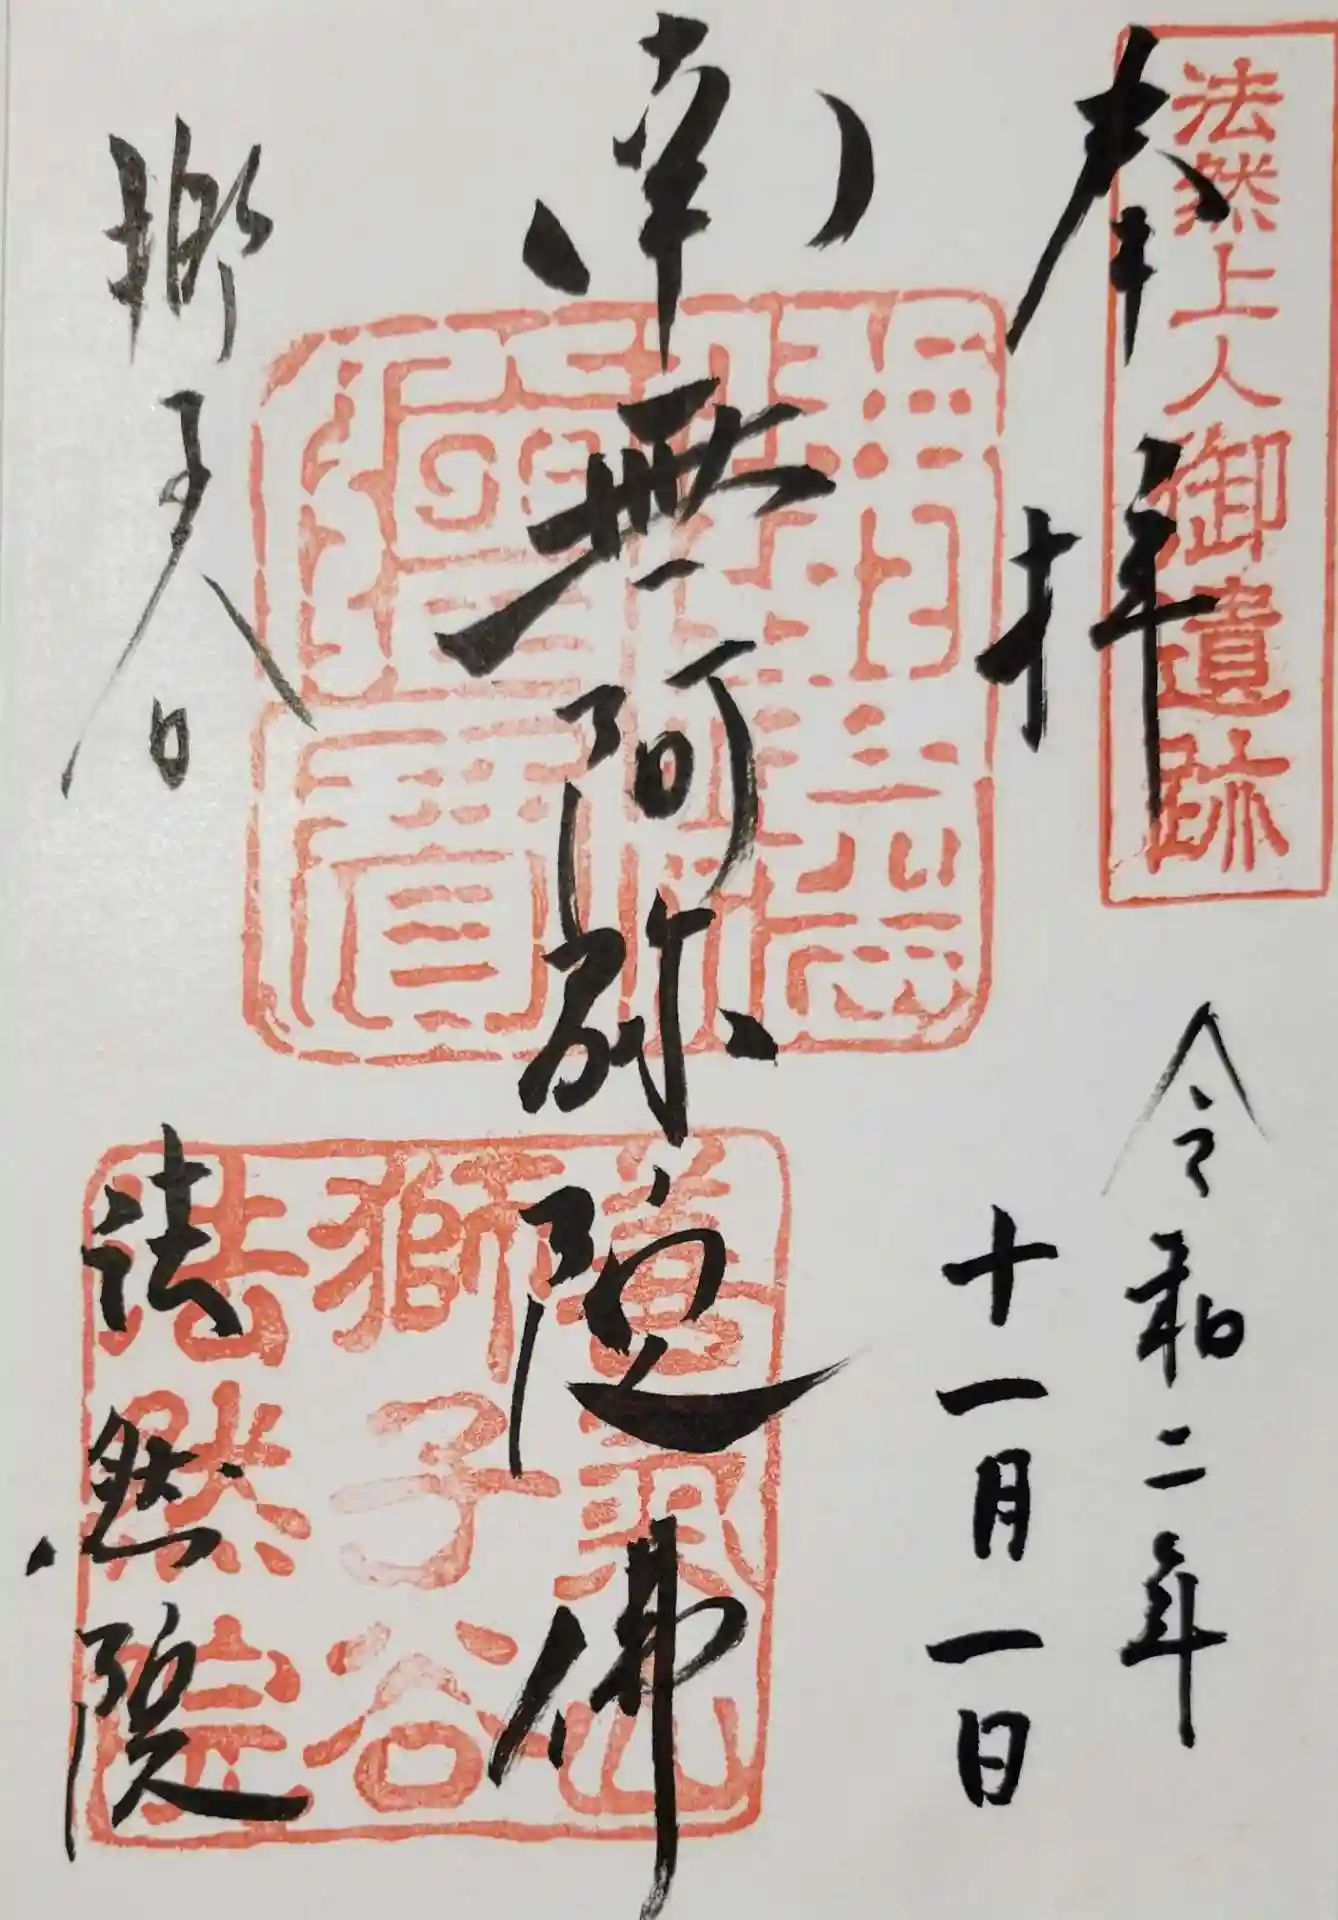 法然上人御遺跡
奉拝
令和二年
十一月一日
南無阿弥陀佛
獅子谷
法然院
獅子谷
法然院